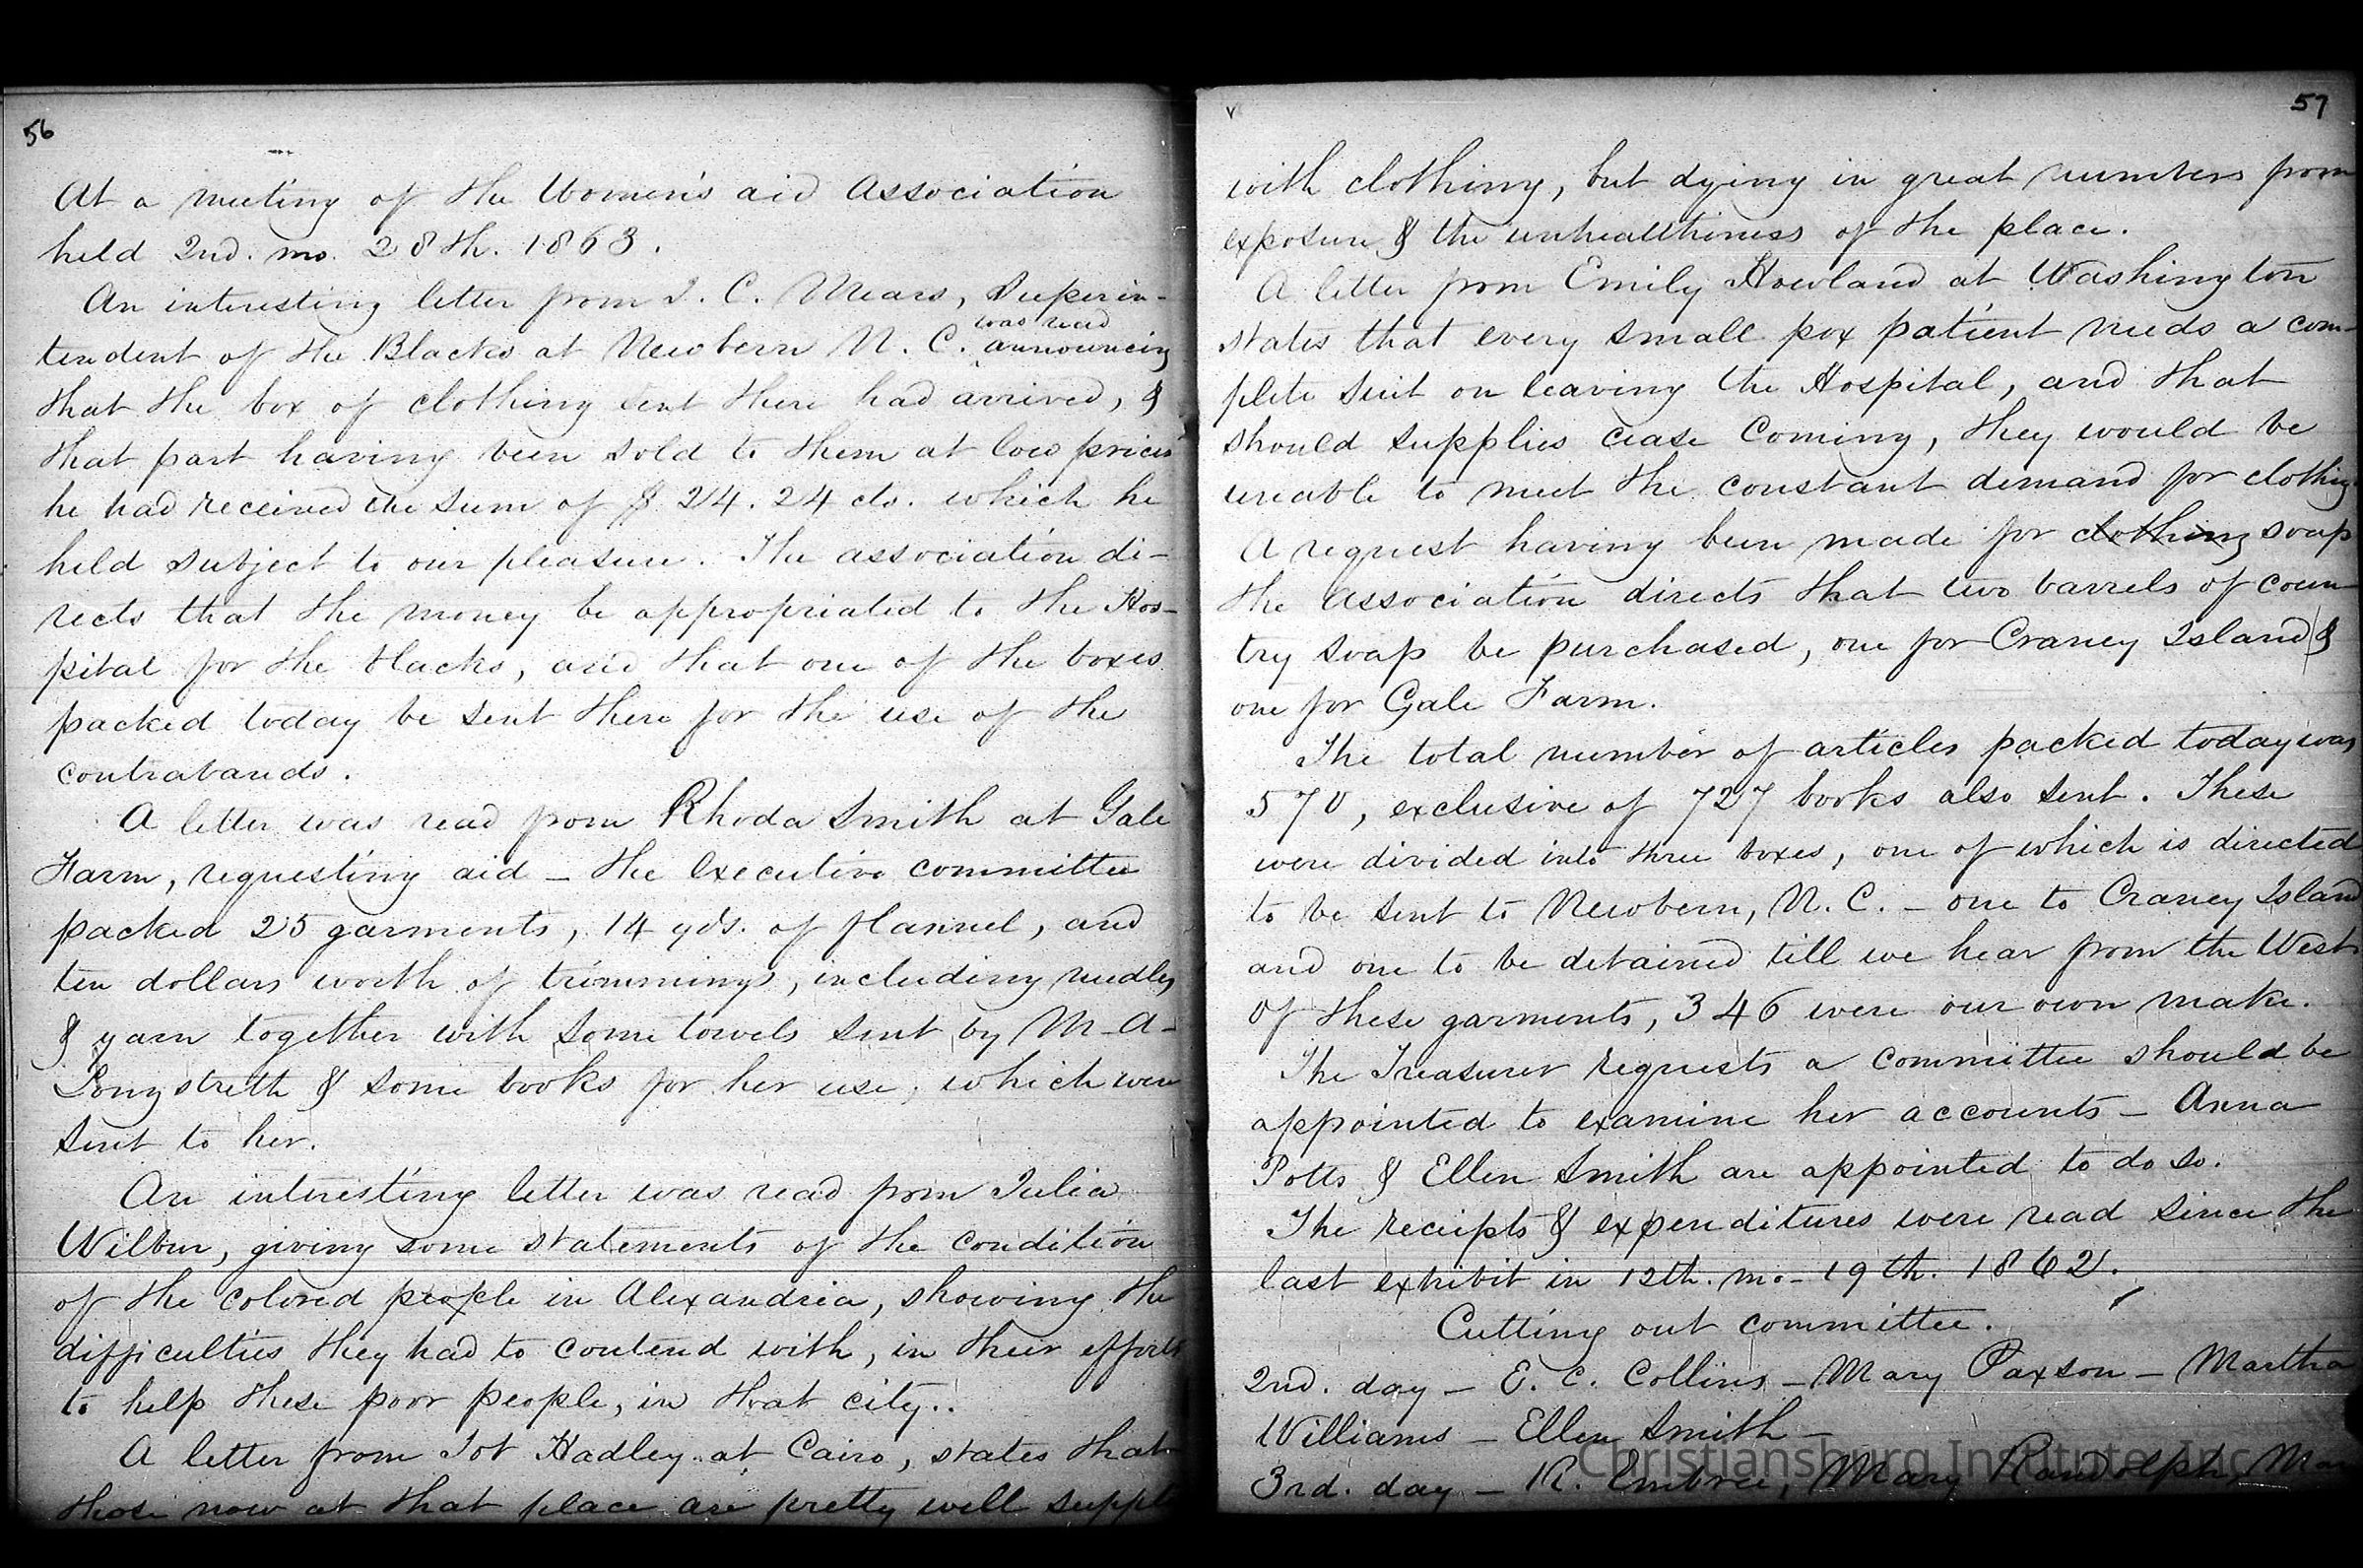 56
At a meeting of the Women's aid Association
held 2nd. mo. 28th. 1863.
An interesting letter from J. C. Mears, Superin-
was read
tendent of the Blacks at Newbern N. C. announcing
that the box of clothing sent there had arrived, &
that part having been sold to them at low prices
he had received the sum of $ 24. 24 cts. which he
held subject to our pleasure. The association di-
rects that the money be appropriated to the Hos-
pital for the blacks, and that one of the boxes
packed today be sent there for the use of the
contrabands.
A letter was read from Rhoda Smith at Gale
Farm, requesting aid - the executive committee
packed 25 garments, 14 yds. of flannel, and
ten dollars worth of trimmings, including needles
& yarn together with some towels sent by M-A-
Longstreth & some books for her use, which were
sent to her.
An interesting letter was read from Julia
Wilbur, giving some statements of the condition
of the colored people in Alexandria, showing the
difficulties they had to contend with, in their efforts
to help these poor people, in that city..
A letter from Job Hadley at Cairo, states that
those now at that place are pretty well suppl
57
with clothing, but dying in great numbers from
exposure & the unhealthiness of the place.
A letter from Emily Howland at Washington
states that every small pox patient needs a com-
plete suit on leaving the Hospital, and that
should supplies cease coming, they would be
unable to meet the constant demand for clothing.
A request having been made for clothing soap
the association directs that two barrels of coun-
try soap be purchased, one for Craney Island &
one for Gale Farm.
The total number of articles packed today was
570, exclusive of 727 books also sent. These
were divided into three boxes, one of which is directed
to be sent to Newbern, N. C. - one to Craney Island
and one to be detained till we hear from the West.
Of these garments, 346 were our own make.
The Treasurer requests a committee should be
appointed to examine her accounts - Anna
Potts & Ellen Smith are appointed to do so.
The receipts & expenditures were read since the
last exhibit in 12th. mo- 19th. 1862.
Cutting out committee.
2nd. day - E. C. Collins - Mary Paxson - Martha
Williams - Ellen Smith -
3rd. day - R. Embree, Mary Randolph, Mar
Christiansburg Institute, Inc.